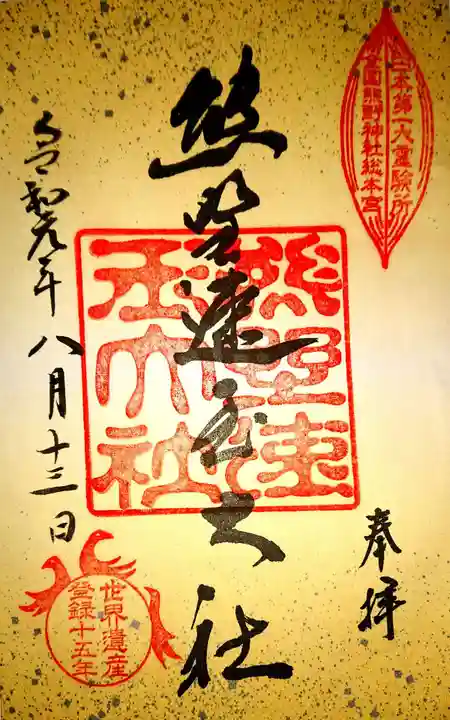 日本第一大霊験所
全国熊野神社総本宮
奉拝
熊野速玉大社
熊野速
玉大社
令和元年八月十三日
世界遺産
登録十五年